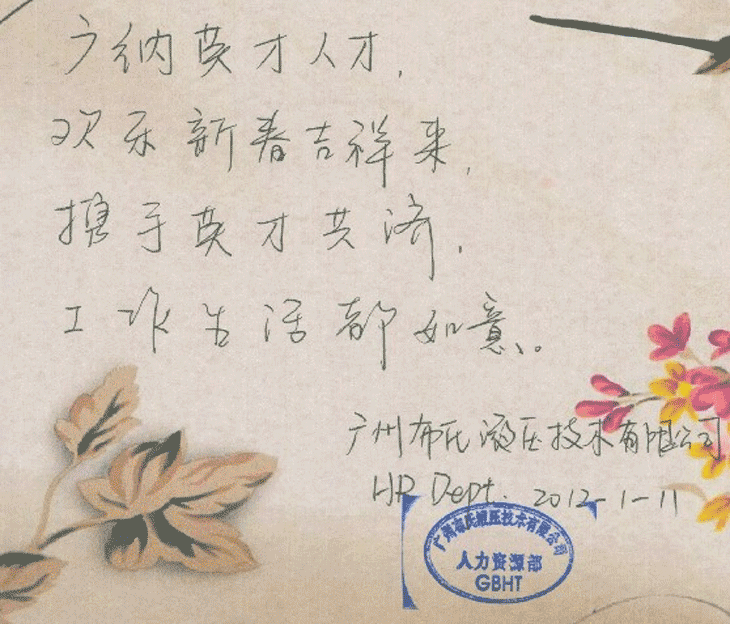 广纳英才人才,
欢乐新春吉祥来,
携手英才共济,
工作生活都如意。
广州布氏液压技术有限公司
HR Dept. 2012-1-11
广州布氏液压技术有限公司
人力资源部
GBHT